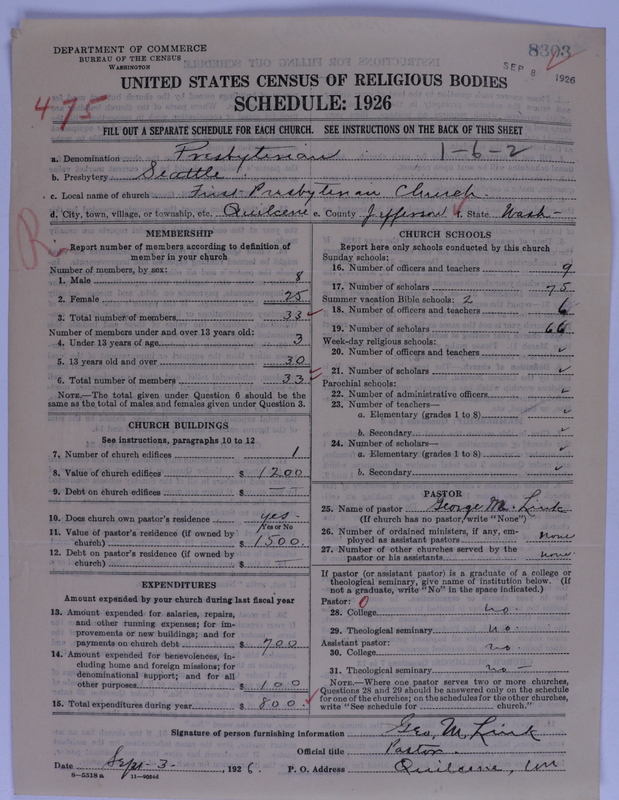 DEPARTMENT OF COMMERCE
BUREAU OF THE CENSUS
WASHINGTON
8303
SEP 8 1926
UNITED STATES CENSUS OF RELIGIOUS BODIES
SCHEDULE: 1926
475
FILL OUT A SEPARATE SCHEDULE FOR EACH CHURCH. SEE INSTRUCTIONS ON THE BACK OF THIS SHEET
a. Denomination Presbyterian 1-6-2
b. Presbytery Seattle
c. Local name of church First Presbyterian Church
d. City, town, village, or township, etc. Quilcene e. County Jefferson f. State Wash-
R
MEMBERSHIP
Report number of members according to definition of
member in your church
Number of members, by sex:
1. Male 8
2. Female 25
3. Total number of members 33
Number of members under and over 13 years old:
4. Under 13 years of age 3
5. 13 years old and over 30
6. Total number of members 33
NOTE.—The total given under Question 6 should be
same as the total of males and females given under Question 3.
CHURCH BUILDINGS
See instructions, paragraphs 10 to 12
7. Number of church edifices 1
8. Value of church edifices $ 1200
9. Debt on church edifices $ — —
10. Does church own pastor's residence yes-
Yes or No
11. Value of pastor's residence (if owned by
church) $ 1500.
12. Debt on pastor's residence (if owned by
church) $ —
EXPENDITURES
Amount expended by your church during last fiscal year
13. Amount expended for salaries, repairs,
and other running expenses; for im-
provements or new buildings; and for
payments on church debt $ 700
14. Amount expended for benevolences, in-
cluding home and foreign missions; for
denominational support; and for all
other purposes $ 100
15. Total expenditures during year $ 800.
CHURCH SCHOOLS
Report here only schools conducted by this church
Sunday schools:
16. Number of officers and teachers 9
17. Number of scholars 75
Summer vacation Bible schools: 2
18. Number of officers and teachers 6
19. Number of scholars 66
Week-day religious schools:
20. Number of officers and teachers ✓
21. Number of scholars ✓
Parochial schools:
22. Number of administrative officers ✓
23. Number of teachers—
a. Elementary (grades 1 to 8) ✓
b. Secondary ✓
24. Number of scholars—
a. Elementary (grades 1 to 8) ✓
b. Secondary ✓
PASTOR
25. Name of pastor George M. Link
(If church has no pastor, write "None")
26. Number of ordained ministers, if any, em-
ployed as assistant pastors none
27. Number of other churches served by the
pastor or his assistants none
If pastor (or assistant pastor) is a graduate of a college or
theological seminary, give name of institution below. (If
not a graduate, write "No" in the space indicated.)
Pastor: 0
28. College no.
29. Theological seminary no.
Assistant pastor:
30. College no.
31. Theological seminary no —
NOTE.—Where one pastor serves two or more churches,
Questions 28 and 29 should be answered only on the schedule
for one of the churches; on the schedules for the other churches,
write "See schedule for church."
Signature of person furnishing information Geo. M. Link
Official title Pastor.
Date Sept-3-, 1926. P. O. Address Quilcene, Wn
8-5518a 11-9054d